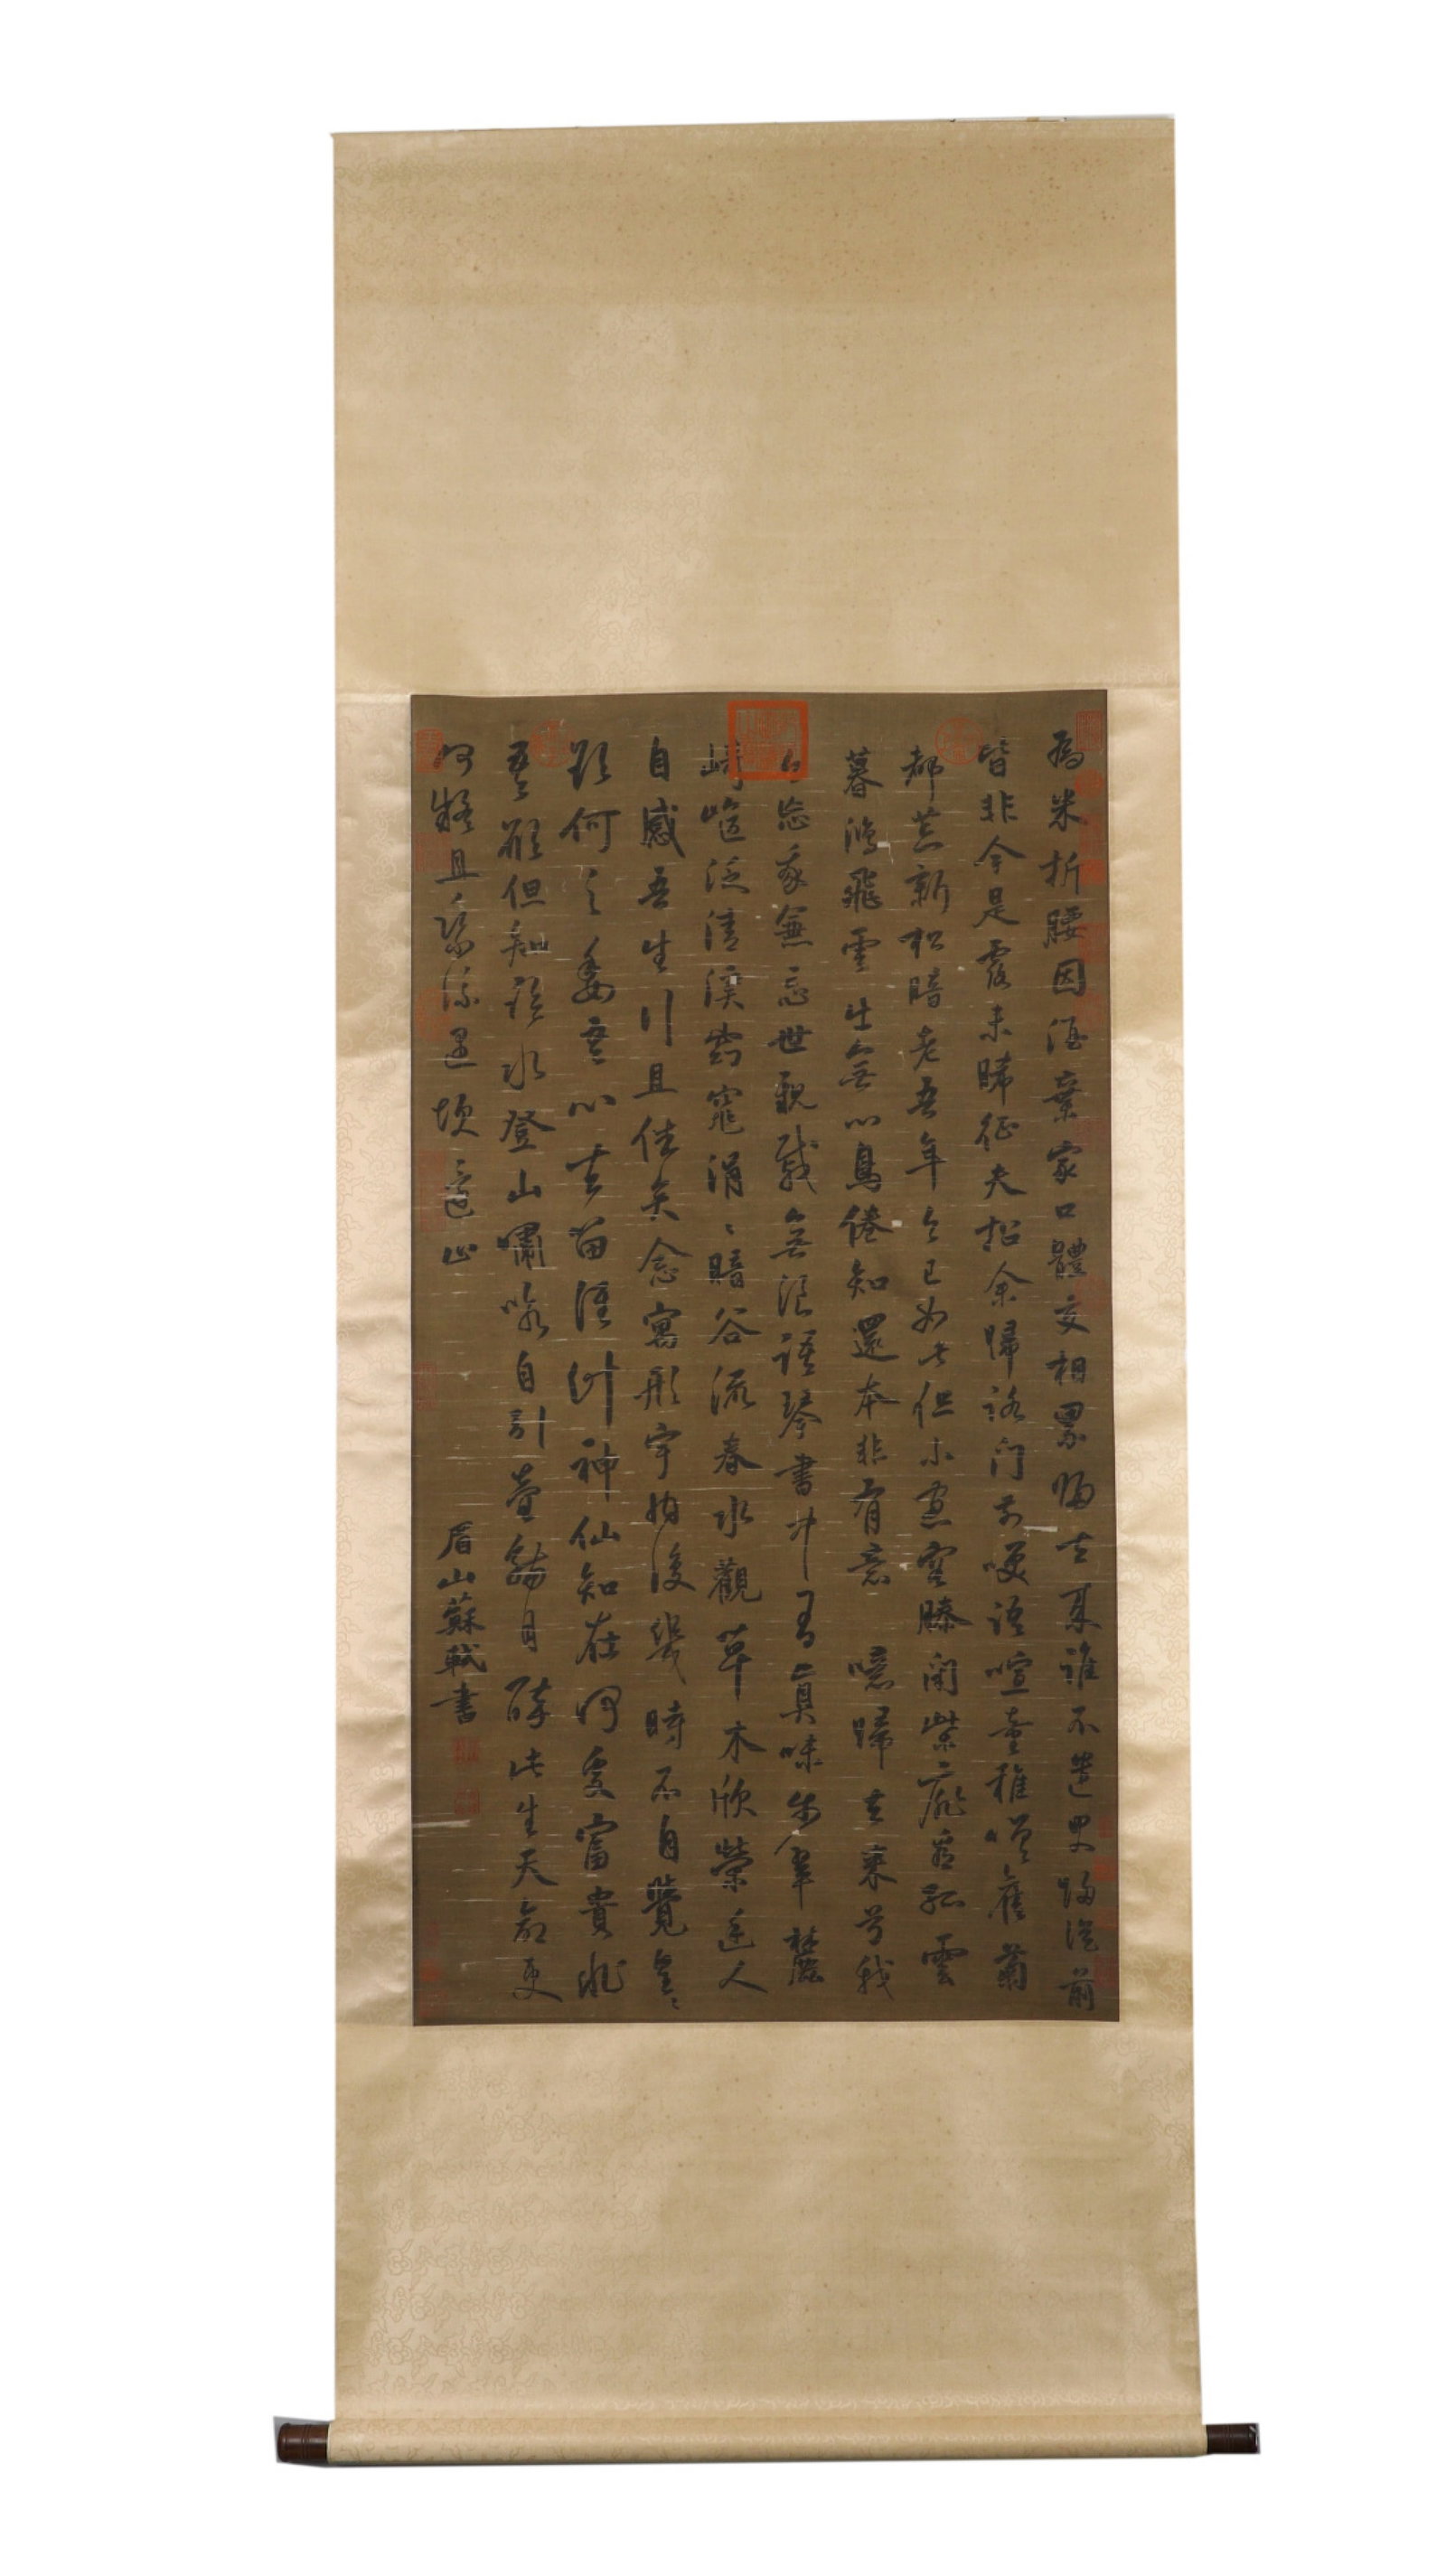 為米折腰因酒棄家口體交相累歸去來誰不遣君歸從前
皆非今是露未晞征夫指余歸路門前笑語喧童稚嗟舊菊
都荒新松暗老吾年今已如此但小窓容膝閉柴扉看孤雲
暮鴻飛雲出無心鳥倦知還本非有意 噫歸去來兮我
今忘我兼忘世親戚無浪語琴書中有真味步翠麓
崎嶇泛清溪窈窕涓〻暗谷流春水觀草木欣榮幽人
自感吾生行且休矣念寓形宇內復幾時不自覺皇〻
欲何之委吾心去留誰計神仙知在何處富貴非
吾願但知臨水登山嘯詠自引壺觴自醉此生天命更
何疑且乘流遇坎還止
眉山蘇軾書